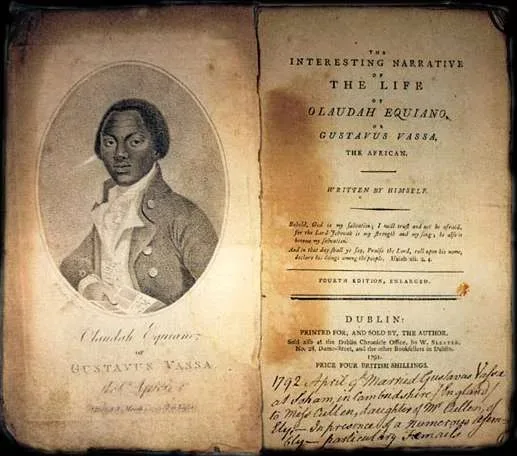 Olaudah Equiano;
or
GUSTAVUS VASSA
the African
THE
INTERESTING NARRATIVE
OF
THE LIFE
OF
OLAUDAH EQUIANO,
OR
GUSTAVUS VASSA,
THE AFRICAN.
WRITTEN BY HIMSELF.
Behold, God is my salvation; I will trust and not be afraid,
for the Lord Jehovah is my strength and my song; he also is
become my salvation.
And in that day shall ye say, Praise the Lord, call upon his name,
declare his doings among the people. Isaiah xii. 2, 4.
FOURTH EDITION, ENLARGED.
DUBLIN:
PRINTED FOR, AND SOLD BY, THE AUTHOR.
Sold also at the Dublin Chronicle Office, by W. SLEATER,
No. 28, Dame-Street, and the other Booksellers in Dublin.
1791.
PRICE FOUR BRITISH SHILLINGS.
1792 April 9th Married Gustavas Vassa
at Soham, in Cambridshire/England/
to Miss Cullen, daughter of Mr Cullen, of
Ely,— In presence of a numerous assem-
bly— particulary Femails